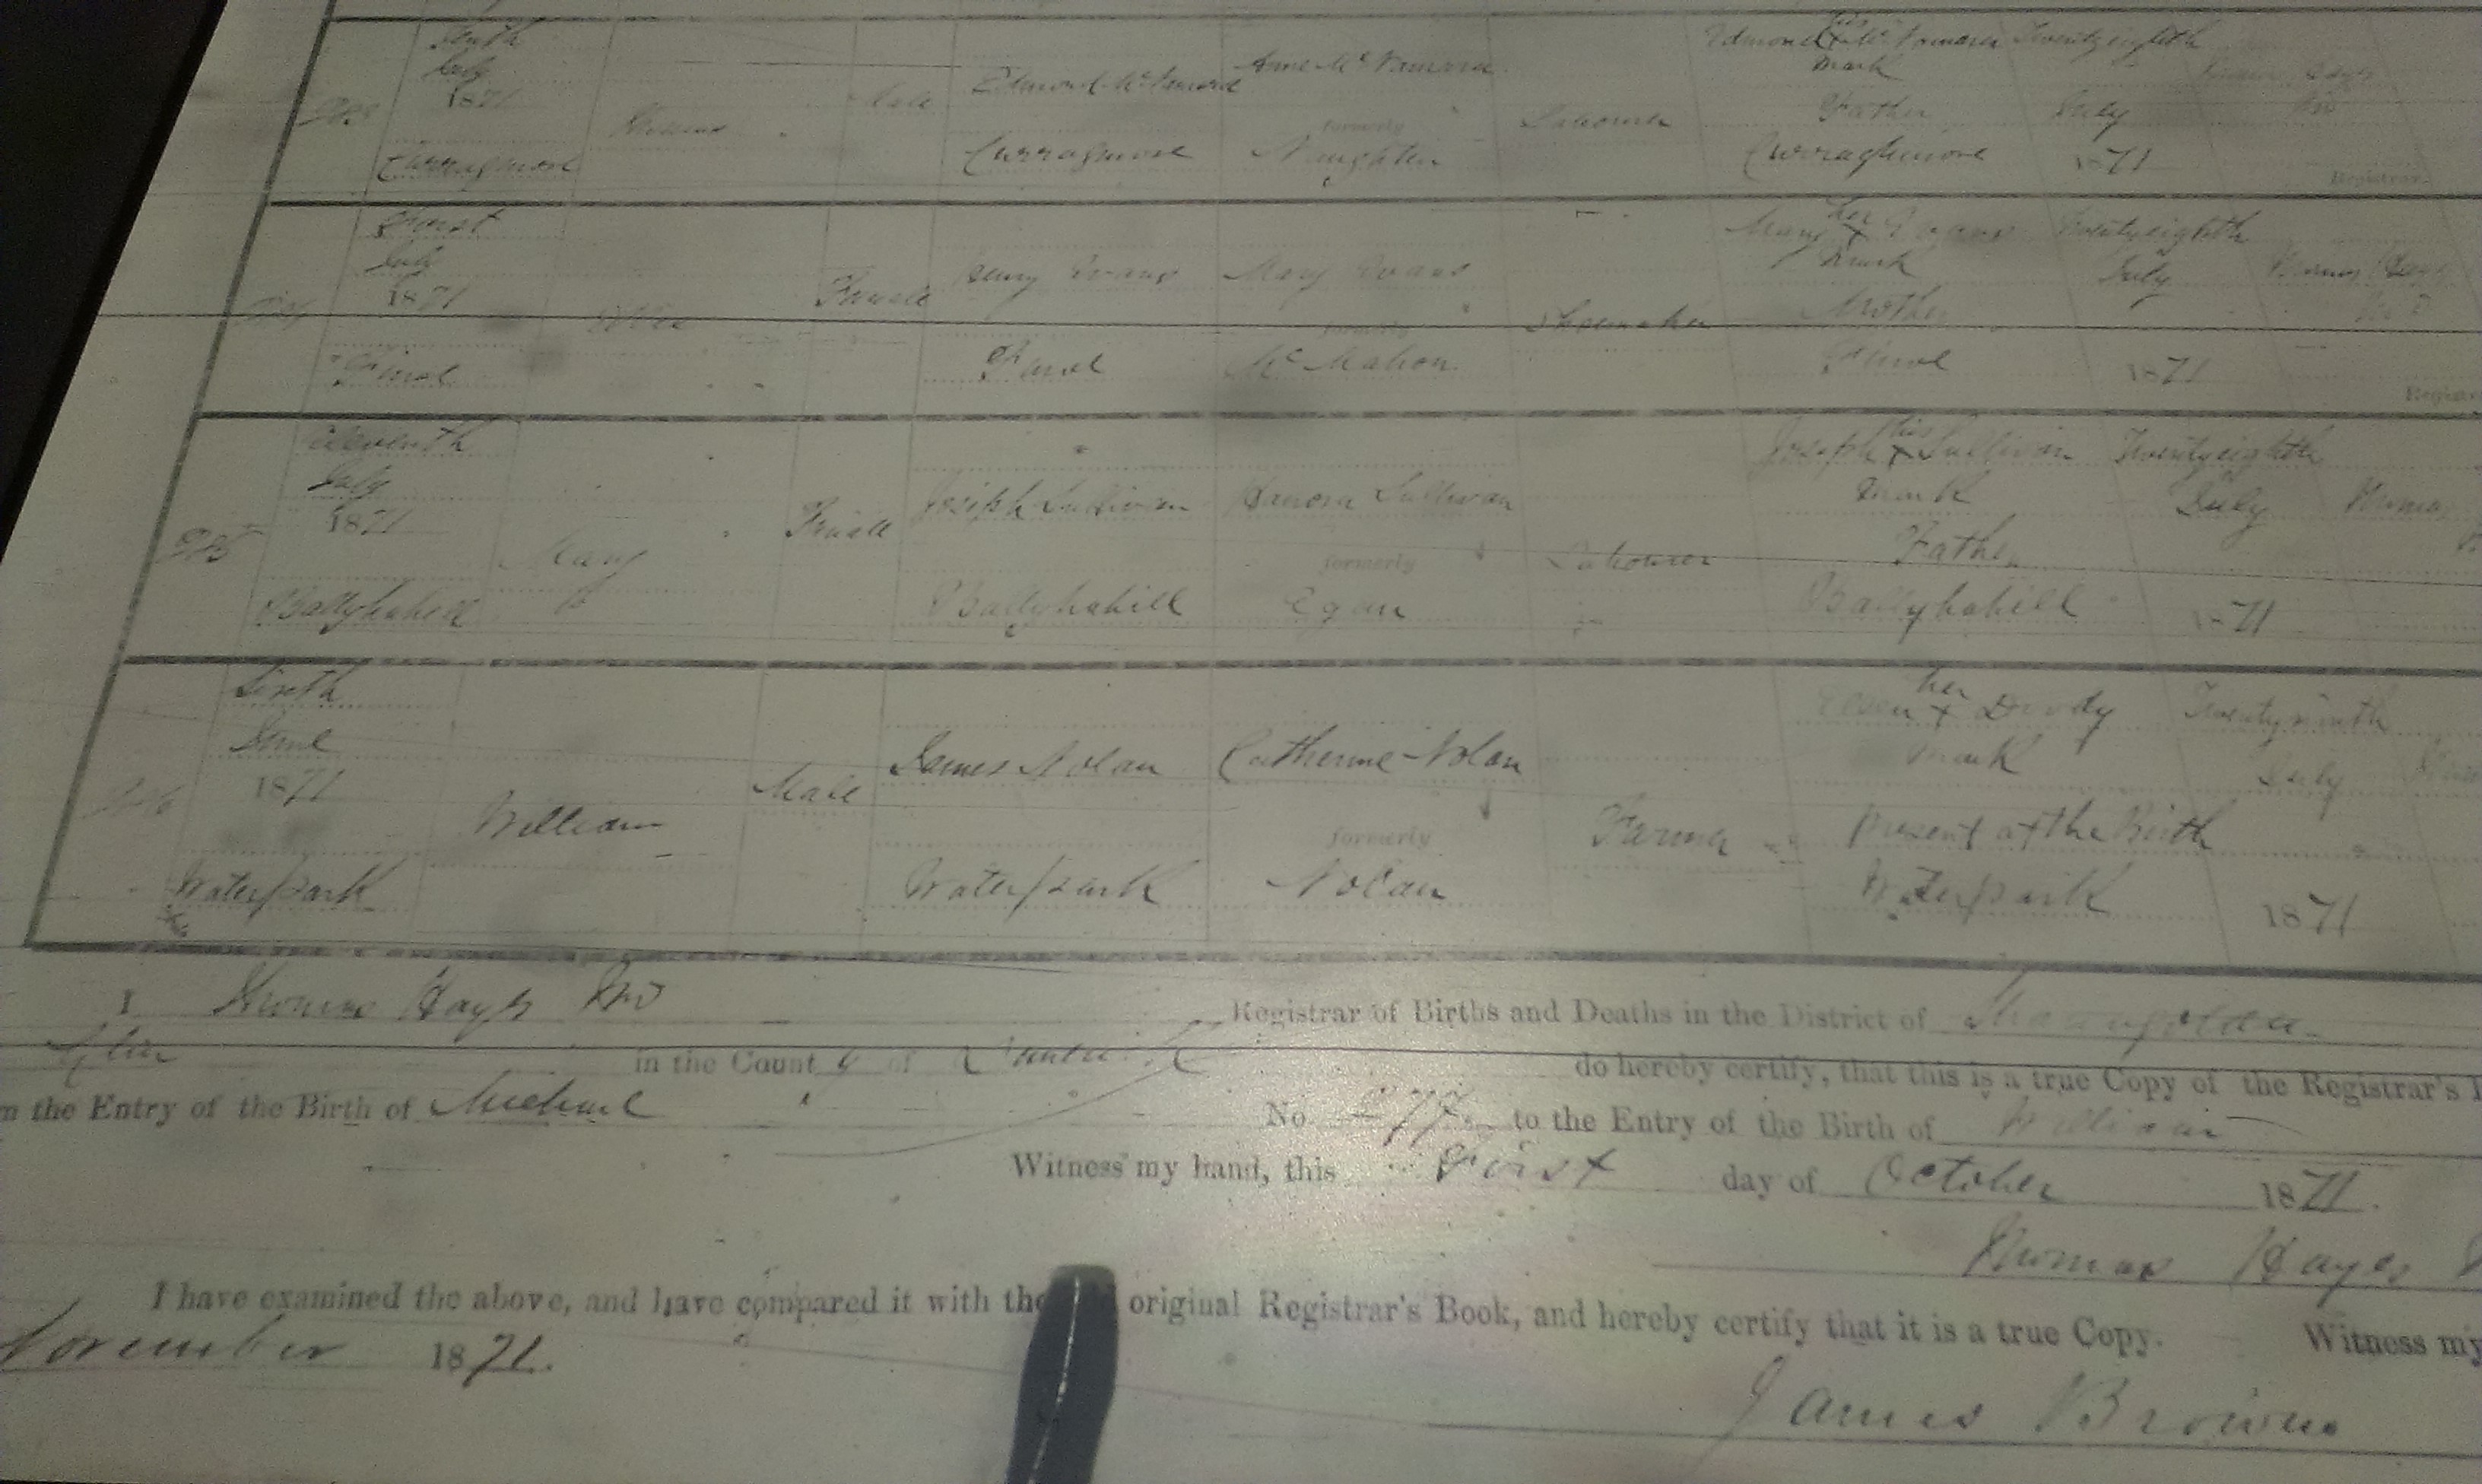 Tenth
July
1871
Curraghmore
Male
Edmond McNamara
Curraghmore
Anne McNamara
formerly
Naughten
Labourer
Edmond his x McNamara
mark
Father
Curraghmore
Twentyeighth
July
1871
Registrar.
First
July
1871
Female
Henry Evans
Mary Evans
formerly
McMahon
Shoemaker
Mary her x Evans
mark
Mother
Twentyeighth
July
1871
Thomas Hayes
Eleventh
July
1871
Ballyhahill
Mary
Female
Joseph Sullivan
Ballyhahill
Hanora Sullivan
formerly
Egan
Labourer
Joseph his x Sullivan
mark
Father
Ballyhahill
Twentyeighth
July
1871
Sixth
June
1871
Waterpark
William
Male
James Nolan
Waterpark
Catherine Nolan
formerly
Nolan
Farmer
Ellen her x Dundy
mark
Present at the Birth
Waterpark
Twentyninth
July
1871
I Thomas Hayes MD Registrar of Births and Deaths in the District of Shanagolden
Glin in the County of Limerick do hereby certify, that this is a true Copy of the Registrar's
the Entry of the Birth of Michael No to the Entry of the Birth of William
Witness my hand, this First day of October 1871.
Thomas Hayes
I have examined the above, and have compared it with the original Registrar's Book, and hereby certify that it is a true Copy. Witness my
November 1871.
James Browne